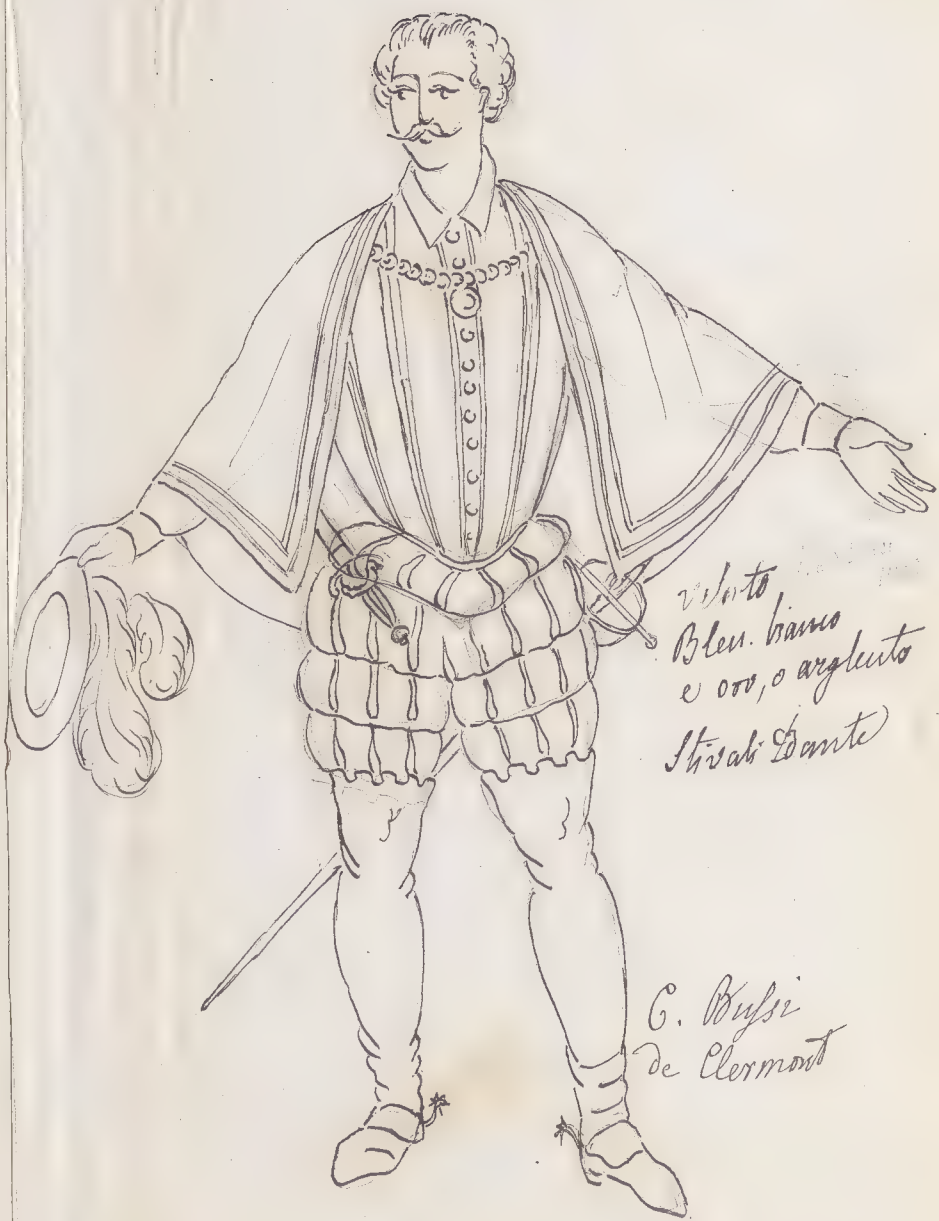 Bleu. bianco
e oro, o arghento
Stivali Dante
C. Bussi
de Clermont